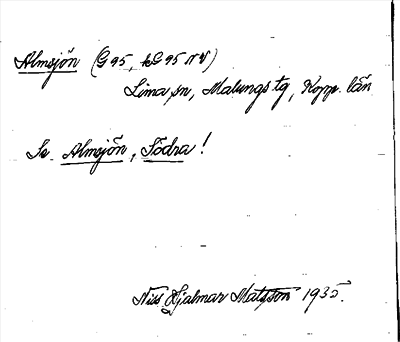 Almsjön (G 95, kG 95 NV)
Lima sn, Malungs tg, Kopp. län
Se Almsjön, Södra!
Nils Hjalmar Matsson 1935.